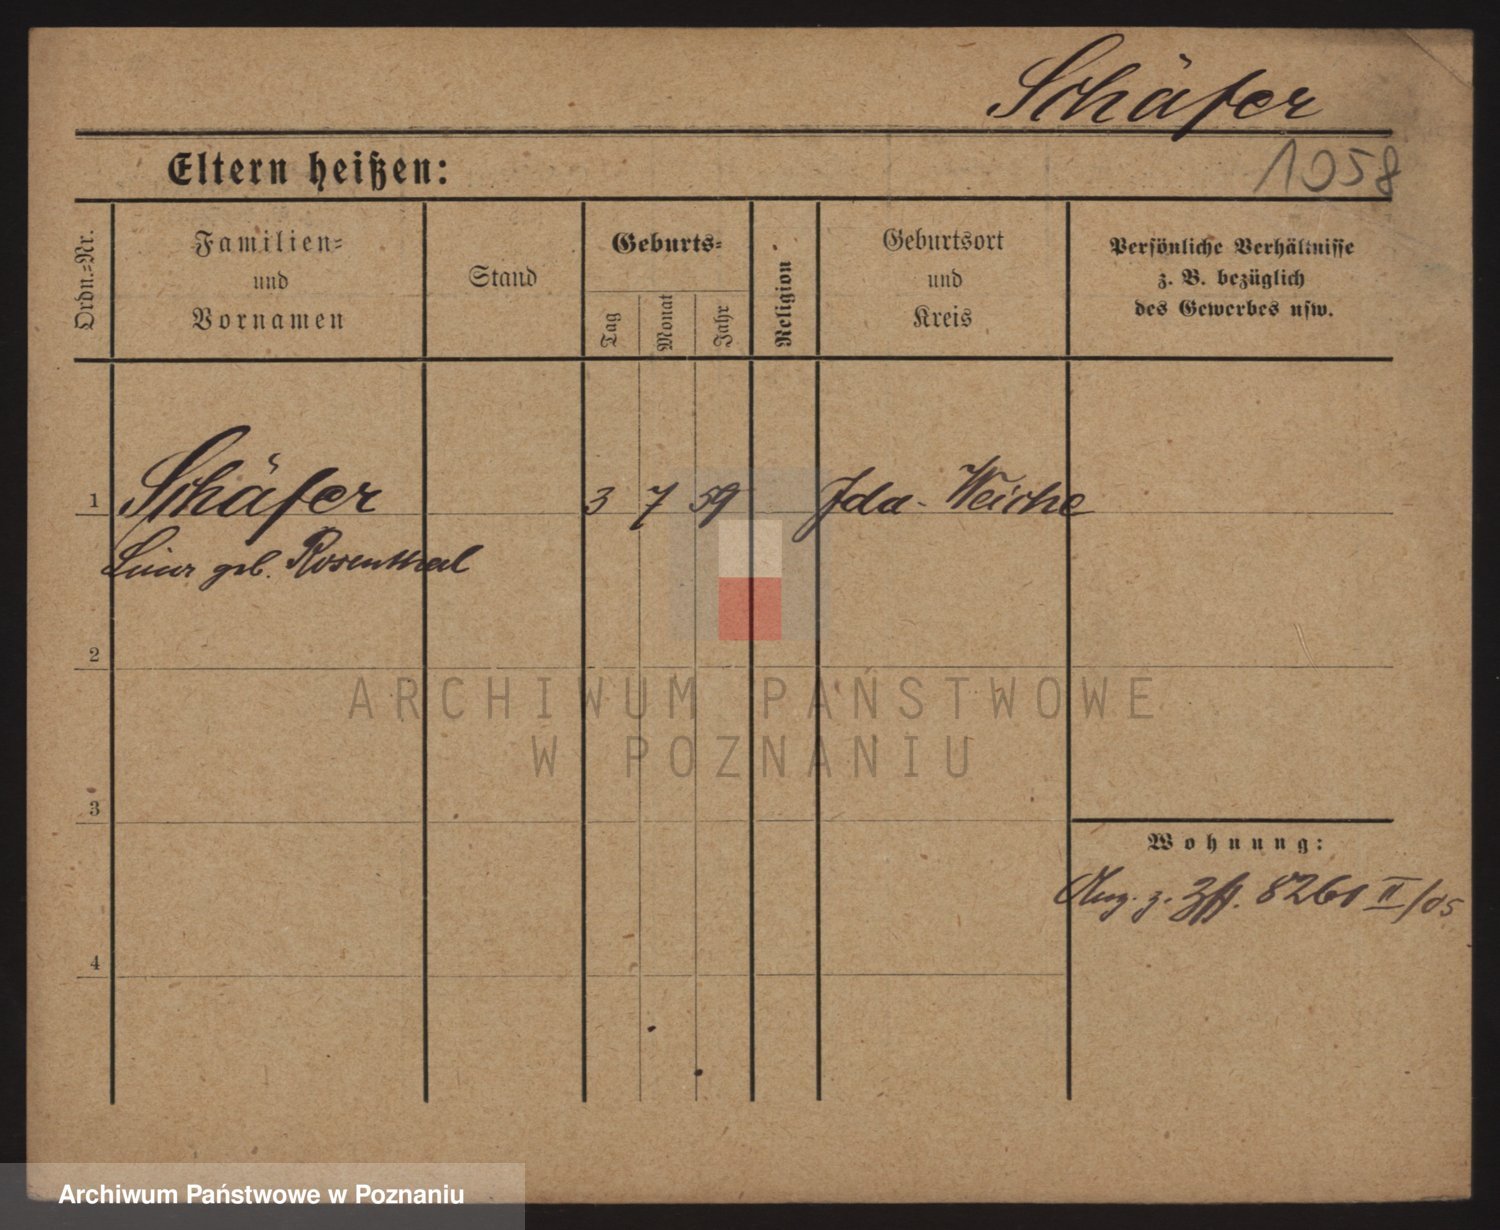 Schäfer
1058
Eltern heißen:
Ordn.-Nr.
Familien- und Vornamen
Stand
Geburts-
Tag
Monat
Jahr
Religion
Geburtsort und Kreis
Persönliche Verhältnisse
z. B. bezüglich
des Gewerbes usw.
1 Schäfer 3 7 59 Ida-Weiche
geb. Rosenthal
2
ARCHIWUM PAŃSTWOWE
W POZNANIU
3
Wohnung:
z. 8261 II/05
4
Archiwum Państwowe w Poznaniu